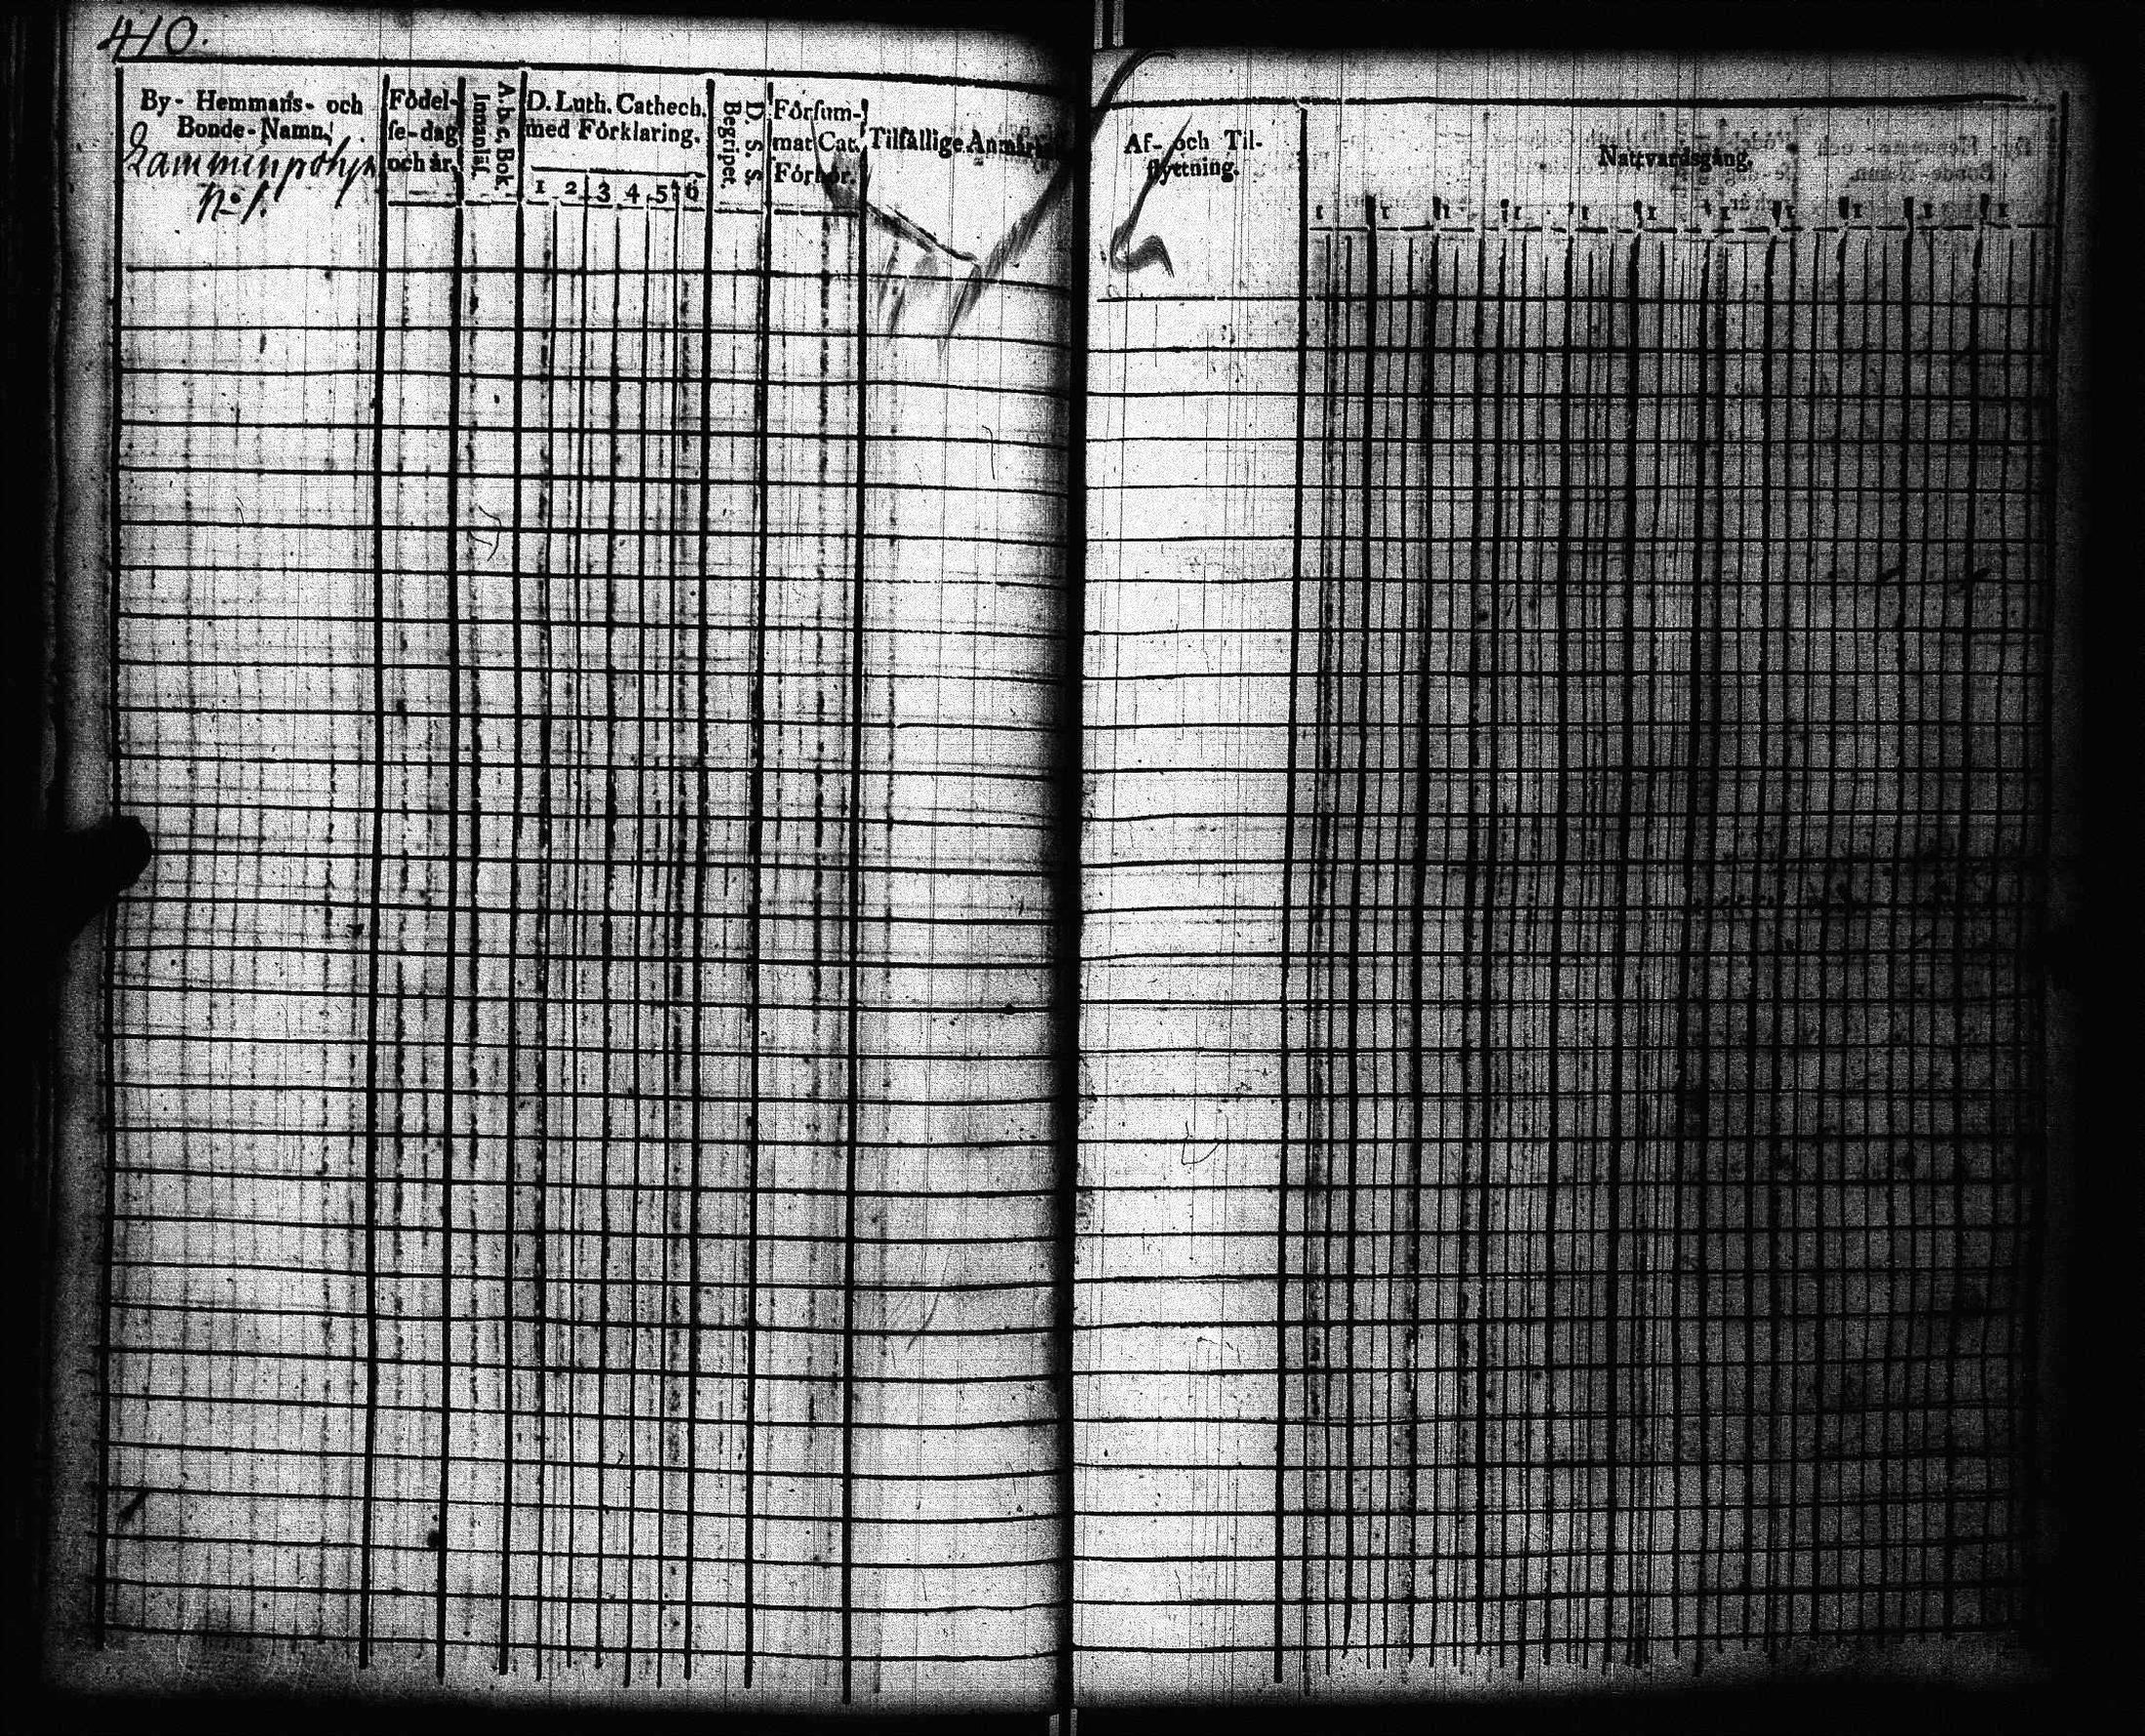 410.
By- Hemmans- och
Bonde-Namn.
Lamminpohja
No 1.
Födel-
se-dag
och år.
A. b. c, Bok.
Innanläs.
D. Luth. Cathech.
med Förklaring.
1 2 3 4 5 6
D. S. S.
Begripet.
Försum-
mat Cat.
Förhör.
Tilfällige Anmärk
Af- och Til-
flyttning.
Nattvardsgång.
1 1 1 1 1 1 1 1 1 1 1